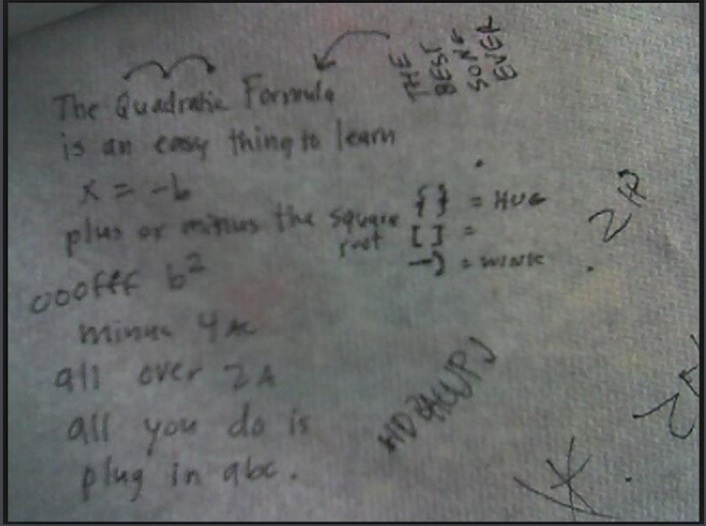 The Quadratic Formula
is an easy thing to learn
x = -b
plus or minus the square
root
ooofff b²
minus 4AC
all over 2A
all you do is
plug in abc.
THE
BEST
SONG
EVER
{ } = HUG
[ ] =
-) = WINK